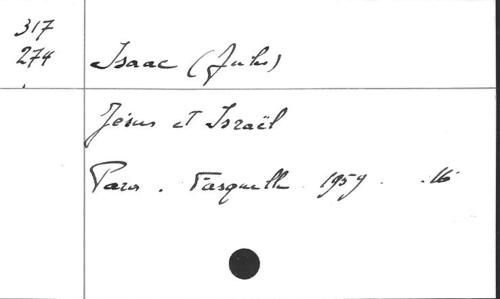 317
274 Isaac (Jules)
Jésus et Israël
Paris. Fasquelle 1959. .16°